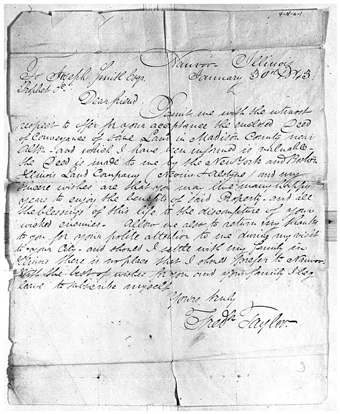 Nauvoo Illinois
January 30th 1843.
To Joseph Smith Esqr
Prophet &c
Dear friend Permit me with the utmost
respect to offer for your acceptance the enclosed Deed
of Conveyance of some Land in Madison County near
Alton - and which I have been informed is valuable -
the Deed is made to me by the New York and Boston
Illinois Land Company and my
sincere wishes are that you may live many happy
years to enjoy the benefits of said Property - and all
the blessings of this life to the discomfiture of your
wicked enemies - allow me also to return my thanks
to you for your polite attention to me during my visit
to your City - and should I settle with my family in
Illinois there is no place that I should prefer to Nauvoo
With the best of wishes for you and your family I beg
leave to subscribe myself
Yours truly
Fredk Taylor